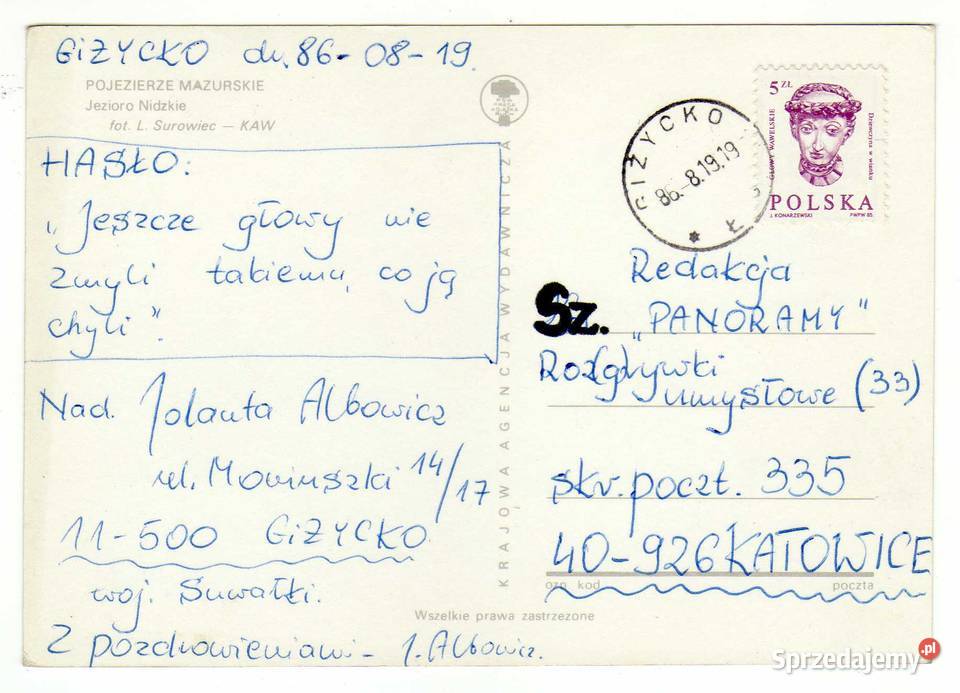 GIŻYCKO dn. 86-08-19.
POJEZIERZE MAZURSKIE
Jezioro Nidzkie
fot. L. Surowiec — KAW
HASŁO:
„Jeszcze głowy nie
zmyli takiemu, co ją
chyli”.
Nad. Jolanta Albowicz
ul. Moniuszki 14/17
11-500 GIŻYCKO
woj. Suwałki.
Z pozdrowieniami - J. Albowicz.
KRAJOWA AGENCJA WYDAWNICZA
Wszelkie prawa zastrzezone
GIŻYCKO
86.-8.19.19
Ł
5 ZŁ
GŁOWY WAWELSKIE
Dziewczyna w wianku
POLSKA
J. KONARZEWSKI PWPW 85
Redakcja
Sz. „PANORAMY”
Roz(g)rywki
umysłowe (33)
skr. poczt. 335
40-926 KATOWICE
ozn kod poczta
Sprzedajemy.pl